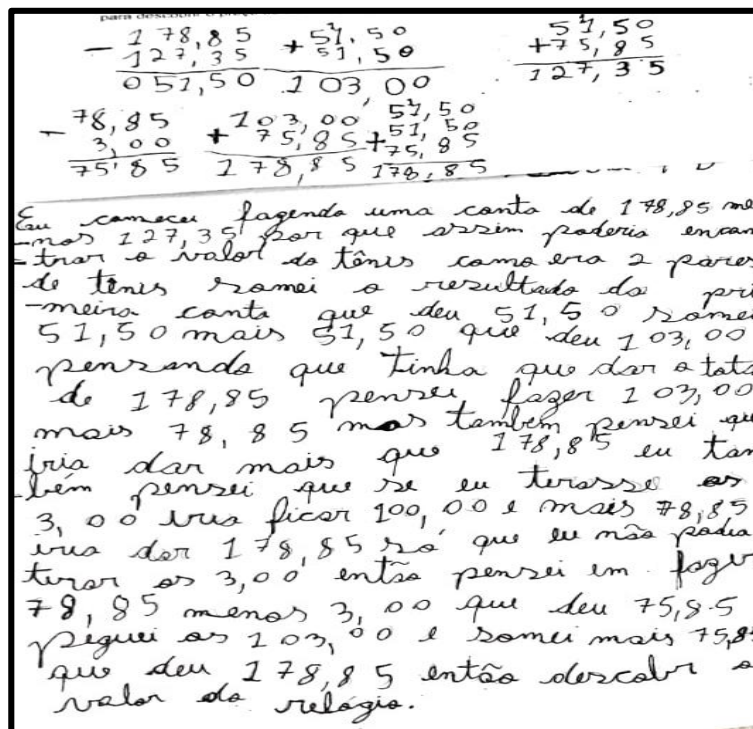 para descobrir o preço
- 178,85 + 51,50 51,50
127,35 51,50 +75,85
051,50 103,00 127,35
- 78,85 103,00 51,50
3,00 + 75,85 + 51,50
75,85 178,85 75,85
178,85
Eu comecei fazendo uma conta de 178,85 me
-nos 127,35 por que assim poderia encon
-trar o valor do tênis como era 2 pares
de tênis somei o resultado da pri
-meira conta que deu 51,50 somei
51,50 mais 51,50 que deu 103,00
pensando que tinha que dar o tota
de 178,85 pensei fazer 103,00
mais 78,85 mas também pensei qu
iria dar mais que 178,85 eu tam
-bém pensei que se eu tirasse os
3,00 iria ficar 100,00 e mais 78,85
iria dar 178,85 só que eu não podia
tirar os 3,00 então pensei em fazer
78,85 menos 3,00 que deu 75,85
peguei os 103,00 e somei mais 75,85
que deu 178,85 então descobri o
valor do relógio.